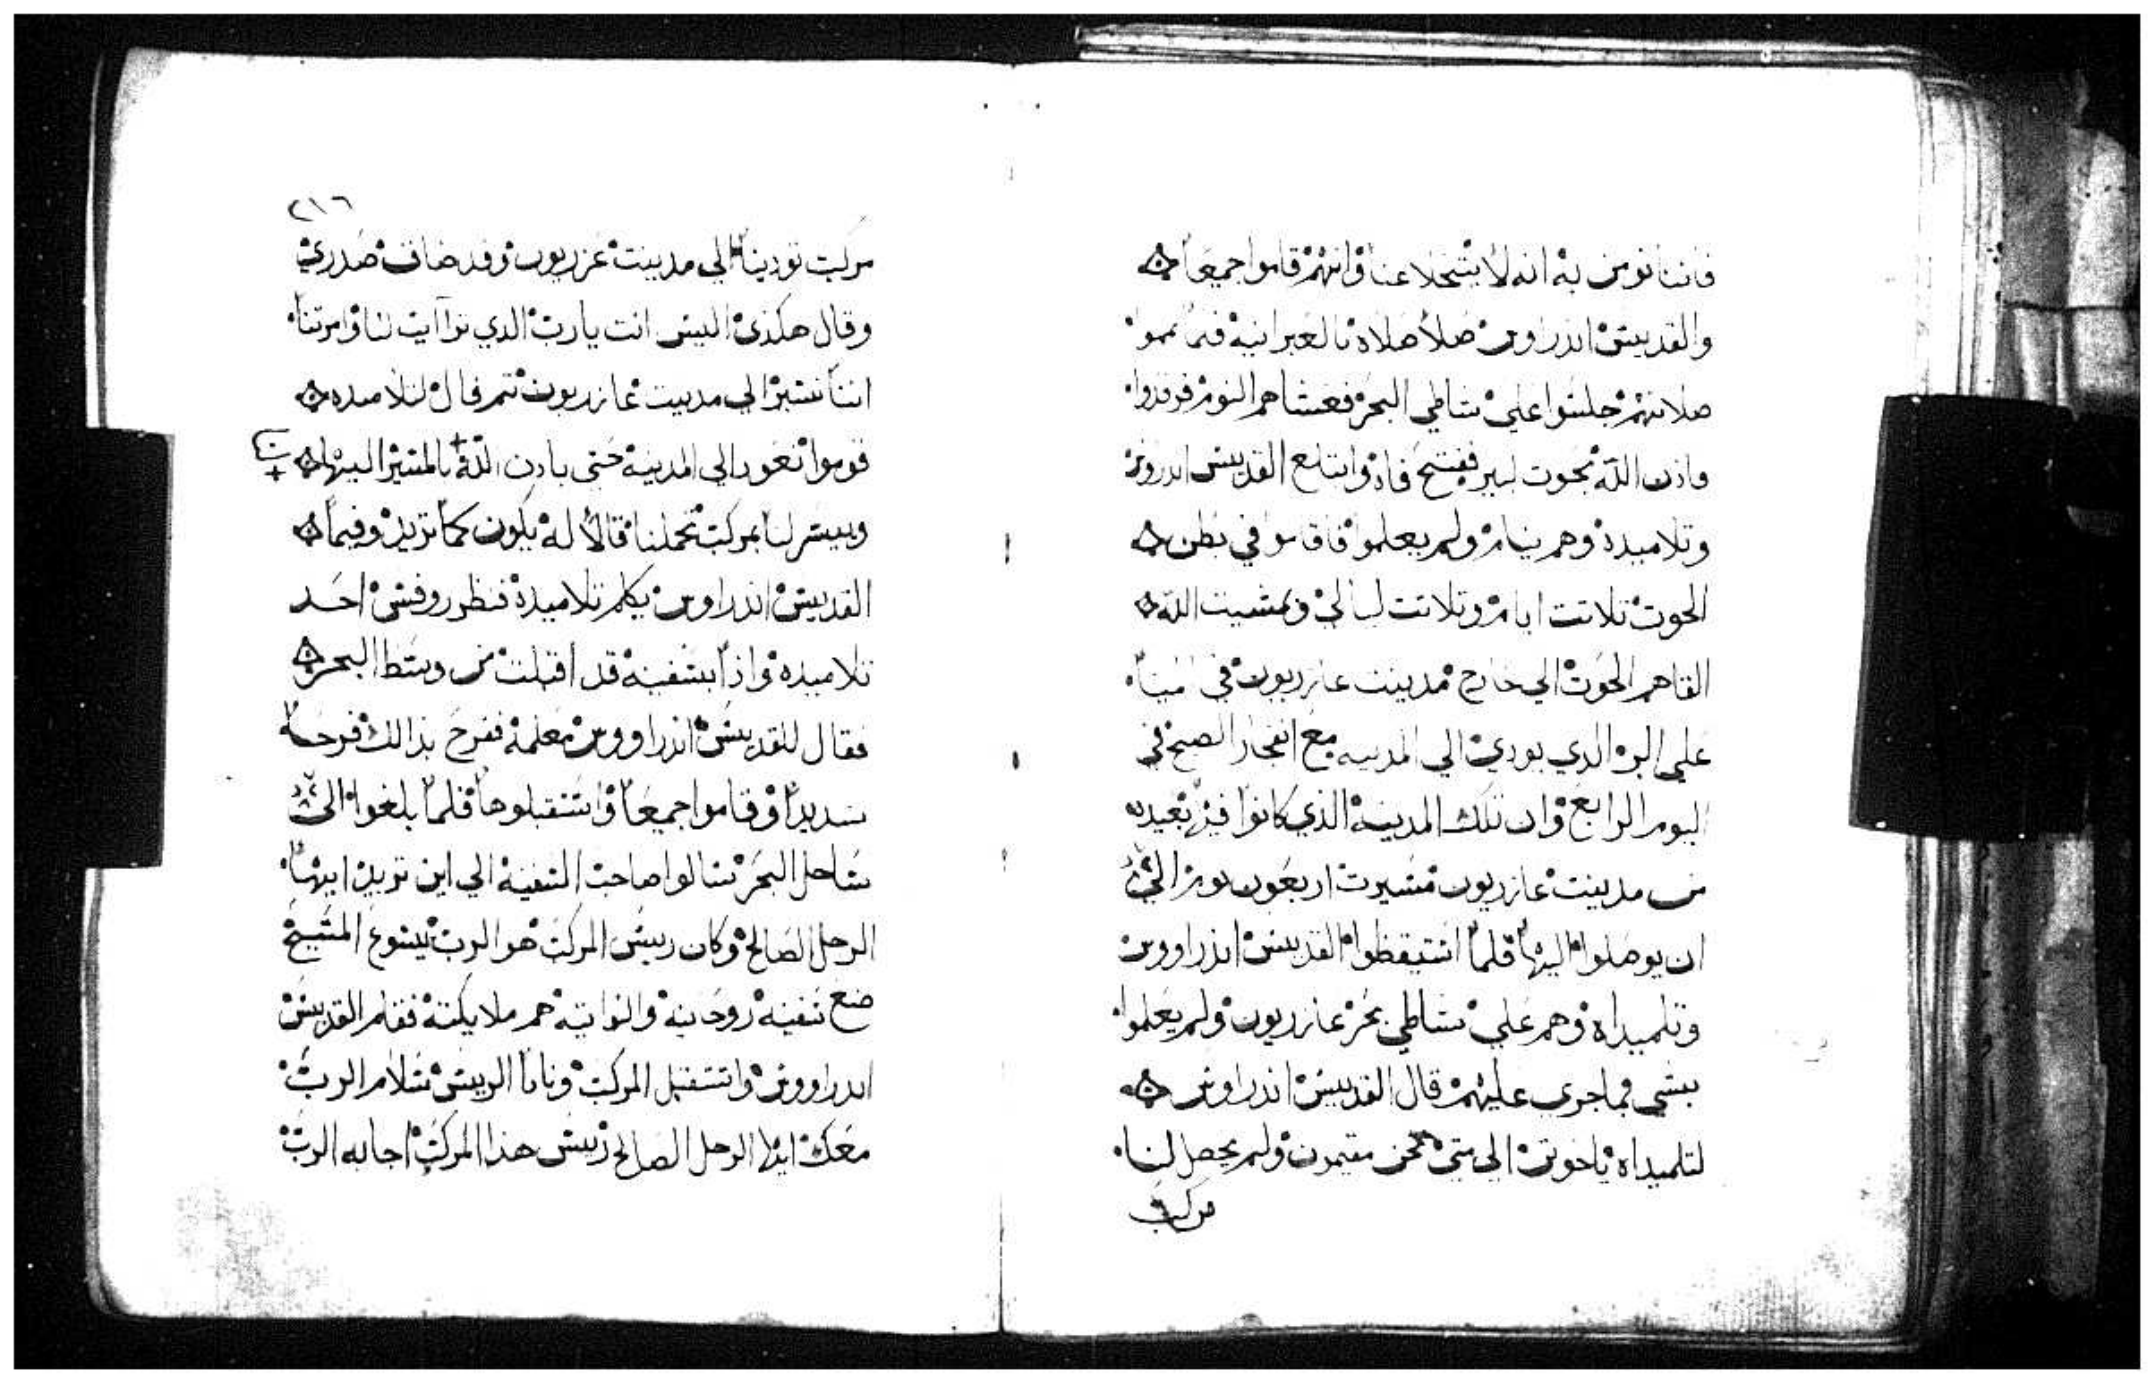 فاننا نومن به انه لا يتخلا عنا وانهم قاموا جميعا
والقديس اندراوس صلا صلاه بالعبرانيه فلما تموا
صلاتهم جلسوا علي شاطي البحر فغشاهم النوم فرقدوا
واذن الله بحوت كبير ففتح فاه وابتلع القديس اندروس
وتلاميده وهم نيام ولم يعلموا فاقاموا في بطن
الحوت تلاتت ايام وتلاتت ليالي وبمشيت الله
القاهم الحوت الي خارج مدينت عازريون في المينا
علي البر الدي يودي الي المدينه مع انفجار الصبح في
اليوم الرابع وان تلك المدينه الذي كانوا فيها بعيده
من مدينت عازريون مسيرت اربعون يوم الي
ان يوصلوا اليها فلما استيقظوا القديس اندراووس
وتلميداه وهم علي شاطي بحر عازريون ولم يعلموا
بشي مما جري عليهم قال القديس اندراوس
لتلميداه يا خوتي الي متي نحن مقيمون ولم يحصل لنا
مركب
٢١٦
مركب تودينا الي مدينت عزريون وقد ضاق صدري
وقال هكذي اليس انت يارب الدي تراايت لنا وامرتنا
اننا نسير الي مدينت عازريون تم قال لتلاميده
قوموا نعود الي المدينه حتي يادن الله بالمسير اليها
وييسر لنا بمركب تحملنا قالا له يكون كما تريد وفيما
القديس اندراوس يكلم تلاميده فنظر روفس احد
تلاميده واذا بسفينه قد اقبلت من وسط البحر
فقال للقديس اندراووس معلمه ففرح بذالك فرحا
شديدا وقاموا جميعا واستقبلوها فلما بلغوا الي
ساحل البحر سالوا صاحب السفينه الي اين تريد ايها
الرجل الصالح وكان رييس المركب هو الرب يسوع المسيح
صنع سفينه روحانيه والنواتيه هم ملايكته فقام القديس
اندراووس واستقبل المركب ونادا الرييس سلام الرب
معك ايها الرجل الصالح رييس هذا المركب اجابه الرب